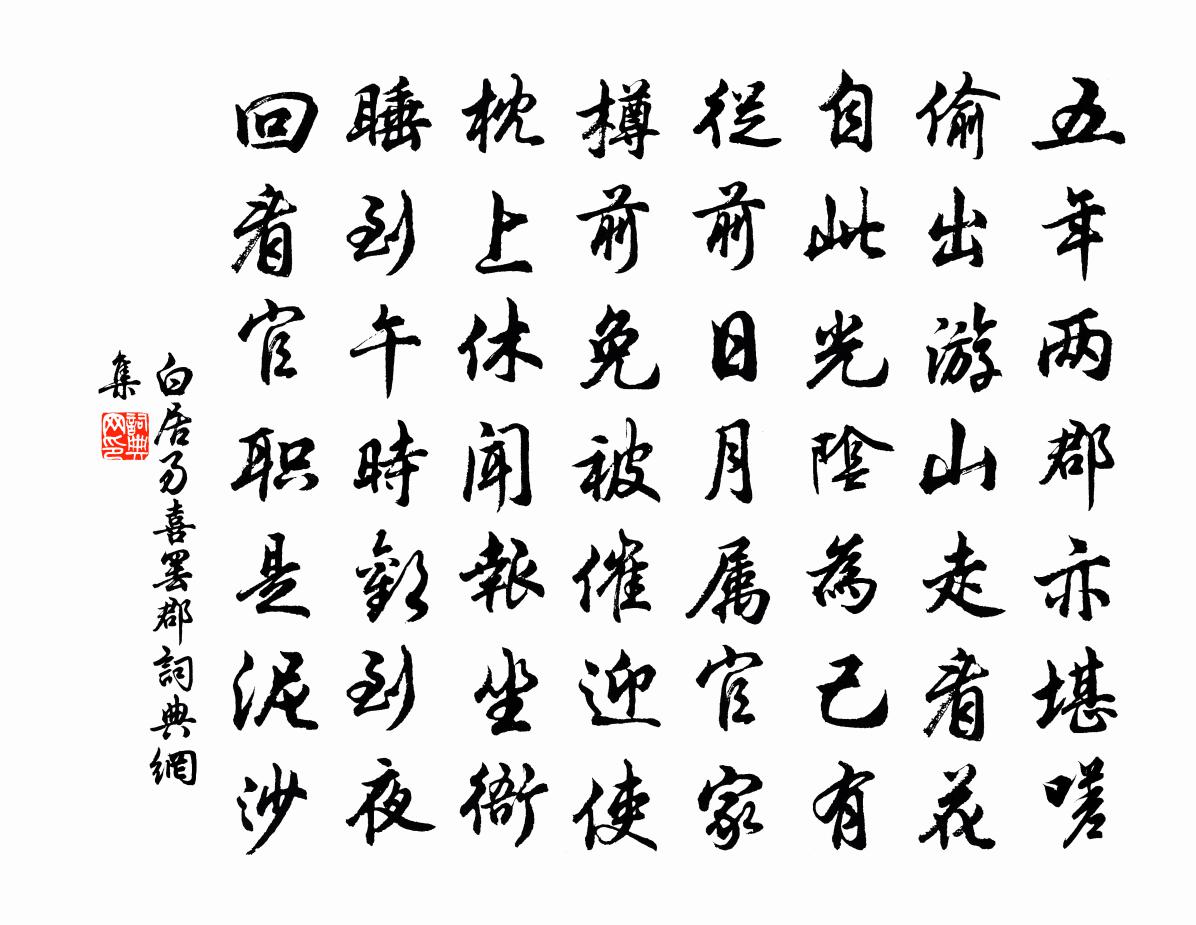 五年两郡亦堪嗟
偷出游山走看花
自此光陰為己有
從前日月属官家
樽前免被催迎使
枕上休聞報坐衙
睡到午時歡到夜
回看官职是泥沙
白居易喜罢郡詞典網
集
詞典网印